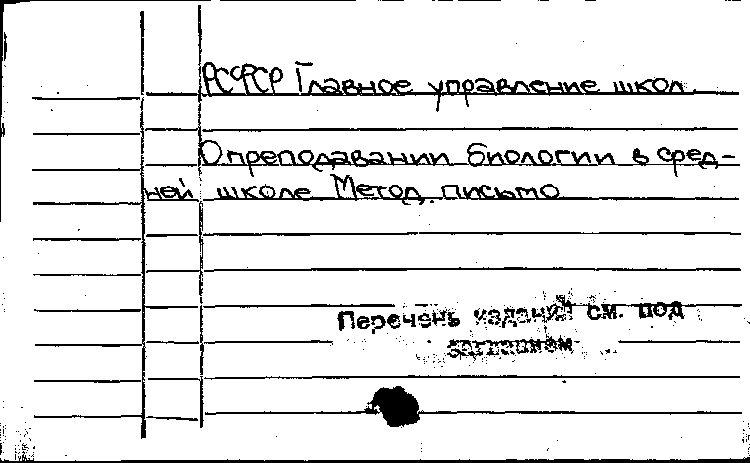 РСФСР Главное управление школ.
О преподавании биологии в сред-
ней школе Метод. письмо
Перечень изданий см. под
заглавием